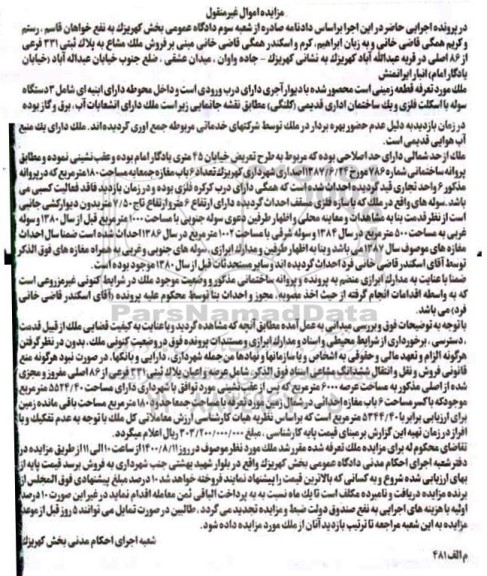 مزایده اموال غیرمنقول
در پرونده اجرایی حاضر در این اجرا براساس دادنامه صادره از شعبه سوم دادگاه عمومی بخش کهریزک به نفع خواهان قاسم ، رستم
و کریم همگی قاضی خانی و به زیان ابراهیم، کرم و اسکندر همگی قاضی خانی مبنی بر فروش ملک مشاع به پلاک ثبتی ۳۳۱ فرعی
از ۸۶ اصلی در قریه عبدالله آباد کهریزک به نشانی کهریزک - جاده واوان ، میدان عشقی ، ضلع جنوب خیابان عبداله آباد (خیابان
یادگار امام) انبار ایرانمنش
ملک مورد تعرفه قطعه زمینی است محصور شده با دیوار آجری دارای درب ورودی است و داخل محوطه دارای ابنیه ای شامل ۳ دستگاه
سوله با اسکلت فلزی و یک ساختمان اداری قدیمی (کلنگی) مطابق نقشه جانمایی زیر است ملک دارای انشعابات آب ، برق و گاز بوده
در زمان بازدید به دلیل عدم حضور بهره بردار در ملک توسط شرکتهای خدماتی مربوطه جمع آوری گردیده اند. ملک دارای یک منبع
آب هوایی قدیمی است.
ملک از حد شمالی دارای حد اصلاحی بوده که مربوط به طرح تعریض خیابان ۴۵ متری یادگار امام بوده و عقب نشینی نموده و مطابق
پروانه ساختمانی شماره مورخ اصداری شهرداری کهریزک تعداد ۶ باب مغازه جمعا به مساحت ۱۸۰ مترمربع که در پروانه
مذکور ۶ واحد تجاری قید گردیده احداث شده است که همگی دارای درب کرکره فلزی بوده و در زمان بازدید فاقد فعالیت کسبی می
باشد. سوله های واقع در ملک که با سازه فلزی مسقف احداث گردیده دارای ارتفاع ۶ متر و ارتفاع تاج ۷/۵۰ متر بدون دیوارکشی جانبی
است از نظر قدمت بنا به مشاهدات و معاینه محلی و اظهار طرفین دعوی سوله جنوبی با مساحت ۱۰۰۰ مترمربع قبل از سال ۱۳۸۰ و سوله
غربی به مساحت ۵۰۰ مترمربع در سال ۱۳۸۴ و سوله شرقی با مساحت ۱۰۰۲ مترمربع در سال ۱۳۸۶ احداث شده است ضمنا سال احداث
مغازه های موصوف سال ۱۳۸۷ می باشد و بنا به اظهار طرفین و مدارک ابرازی، سوله های جنوبی و غربی به همراه مغازه های فوق الذکر
توسط آقای اسکندر قاضی خانی فرد احداث گردیده اند و سایر مستحدثات قبل از سال ۱۳۸۰ موجود بوده است.
ضمنا با عنایت به مدارک ابرازی منضم به پرونده و پروانه ساختمانی مذکور و وضعیت موجود ملک در شرایط کنونی غیرمزروعی است
که به واسطه اقدامات انجام گرفته از حیث اخذ مصوبه، مجوز و احداث بنا توسط محکوم علیه پرونده (آقای اسکندر قاضی خانی
فرد) می باشد.
با توجه به توضیحات فوق و بررسی میدانی به عمل آمده مطابق آنچه که مشاهده گردید و با عنایت به کیفیت قضایی ملک از قبیل قدمت
، دسترسی ، برخورداری از شرایط محیطی و اسناد و مدارک ابرازی و مستندات پرونده فوق در وضعیت کنونی ملک، بدون در نظر گرفتن
هرگونه الزام و تعهد مالی و حقوقی به اشخاص و یا سازمانها و نهادها من جمله شهرداری ، دارایی و بانکها، در صورت نبود هرگونه منع
قانونی فروش و نقل و انتقال ششدانگ مشاعی اسناد فوق الذکر، شامل عرصه و اعیان پلاک ثبتی ۳۳۱ فرعی از ۸۶ اصلی مفروز و مجزی
شده از اصلی مذکور به مساحت عرصه ۶۰۰۰ مترمربع که پس از عقب نشینی مورد توافق با شهرداری دارای مساحت ۵۵۲۴/۴۰ مترمربع
موجود که با کسر مساحت ۶ باب مغازه احداثی در شمال زمین مورد تعرفه با مساحت جمعا حدود ۱۸۰ مترمربع مساحت باقی مانده زمین
برای ارزیابی برابر با ۵۳۴۴/۴۰ مترمربع است که براساس نظریه هیات کارشناسی ارزش معاملاتی کل ملک با توجه به عدم تفکیک و یا
افراز در زمان تهیه این گزارش بر مبنای قیمت پایه کارشناسی ، مبلغ ۳۰۳/۲۰۰/۰۰۰/۰۰۰ ریال اعلام میگردد.
تقاضای محکوم له برای مزایده ملک تعرفه شده مقرر شد ملک مورد نظر موصوف در روز ۱۴۰۰/۸/۱۱ از ساعت ۱۰ الی ۱۱ از طریق مزایده در
دفتر شعبه اجرای احکام مدنی دادگاه عمومی بخش کهریزک واقع در بلوار شهید بهشتی جنب شهرداری به فروش برسد قیمت پایه از
بهای ارزیابی شده شروع و به کسانی که بالاترین قیمت را پیشنهاد نمایند فروخته خواهد شد ۱۰ درصد مبلغ پیشنهادی فوق المجلس از
برنده مزایده دریافت و نامبرده مکلف است تا یک ماه نسبت به به پرداخت الباقی ثمن معامله اقدام نماید در غیر این صورت ۱۰ درصد
اولیه با هزینه های اجرایی به نفع صندوق دولت ضبط و مزایده تجدید می گردد . طالبین در صورت تمایل می توانند ۵ روز قبل از موعد
مزایده به این شعبه مراجعه تا ترتیب بازدید آنان از ملک مورد مزایده داده شود.
شعبه اجرای احکام مدنی بخش کهریزک
م الف ۴۸۱
ParsNamadData